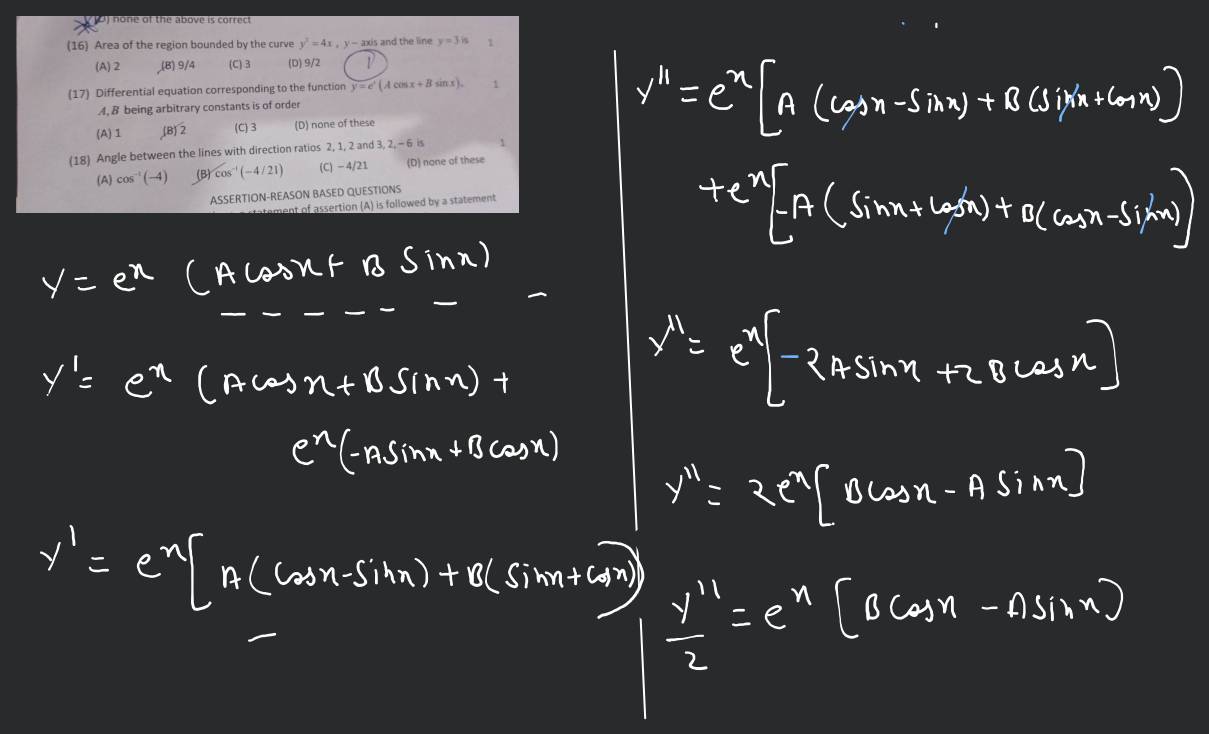 (D) none of the above is correct
(16) Area of the region bounded by the curve y² = 4x , y – axis and the line y = 3 is 1
(A) 2 (B) 9/4 (C) 3 (D) 9/2
(17) Differential equation corresponding to the function y = eˣ (A cos x + B sin x), 1
A, B being arbitrary constants is of order
(A) 1 (B) 2 (C) 3 (D) none of these
(18) Angle between the lines with direction ratios 2, 1, 2 and 3, 2, – 6 is 1
(A) cos⁻¹(–4) (B) cos⁻¹(–4/21) (C) –4/21 (D) none of these
ASSERTION-REASON BASED QUESTIONS
statement of assertion (A) is followed by a statement
y = eˣ (A cosx + B Sinx)
y' = eˣ (A cosx + B Sinx) +
eˣ(-A Sinx + B cosx)
y' = eˣ[A(Cosx - Sinx) + B(Sinx + Cosx)]
y'' = eˣ[A (cosx - Sinx) + B (Sinx + Cosx)]
+ eˣ[-A (Sinx + Cosx) + B(cosx - Sinx)]
y'' = eˣ[-2A Sinx + 2 B cosx]
y'' = 2eˣ[B cosx - A Sinx]
y''/2 = eˣ [B Cosx - A Sinx]